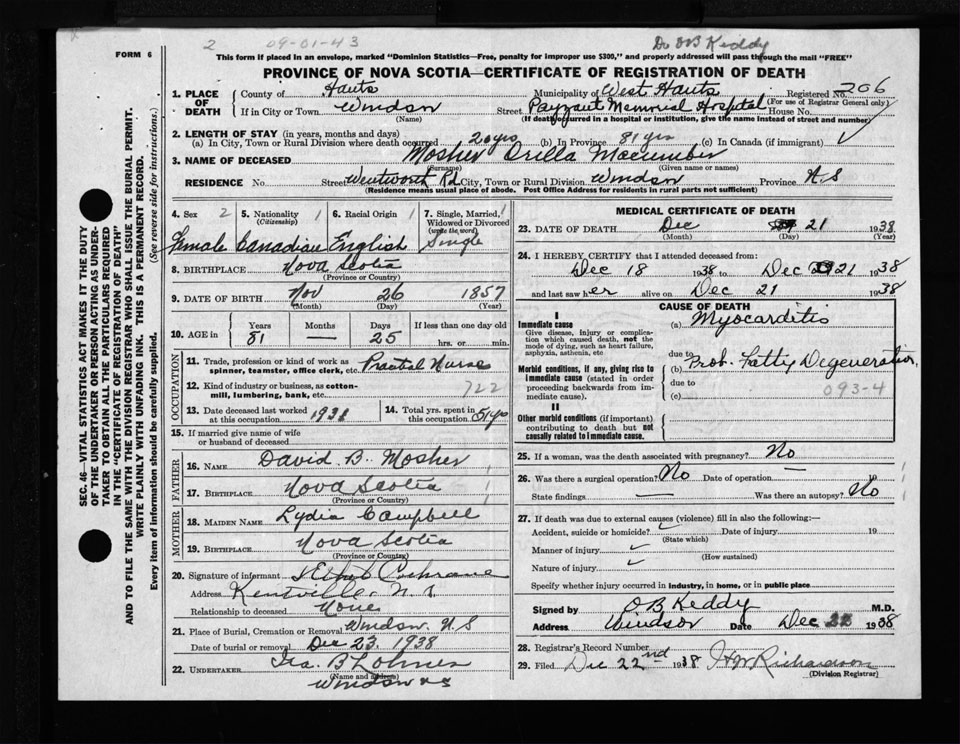 2 09-01-43 Dr OB Keddy
FORM 6
This form if placed in an envelope, marked "Dominion Statistics—Free, penalty for improper use $300," and properly addressed will pass through the mail "FREE"
PROVINCE OF NOVA SCOTIA—CERTIFICATE OF REGISTRATION OF DEATH
1. PLACE OF DEATH County of Hants Municipality of West Hants Registered No. 206
(For use of Registrar General only)
If in City or Town Windsor Street Payzant Memorial Hospital House No.
(Name) (If death occurred in a hospital or institution, give the name instead of street and number)
2. LENGTH OF STAY (in years, months and days)
(a) In City, Town or Rural Division where death occurred 20 yrs (b) In Province 81 yrs (c) In Canada (if immigrant) ✓
3. NAME OF DECEASED Mosher Orilla Macumber
(Surname) (Given name or names)
RESIDENCE No. Street Wentworth Rd City, Town or Rural Division Windsor Province N S
(Residence means usual place of abode. Post Office Address for residents in rural parts not sufficient)
4. Sex 2 5. Nationality 1 6. Racial Origin 1 7. Single, Married, 1
(Citizenship) Widowed or Divorced
(write the word)
Female Canadian English Single
8. BIRTHPLACE Nova Scotia
(Province or Country)
9. DATE OF BIRTH Nov 26 1857
(Month) (Day) (Year)
10. AGE in Years Months Days If less than one day old
81 — 25 hrs. or min.
OCCUPATION
11. Trade, profession or kind of work as spinner, teamster, office clerk, etc. Practical Nurse
12. Kind of industry or business, as cotton-mill, lumbering, bank, etc. 722
13. Date deceased last worked at this occupation 1931 14. Total yrs. spent in this occupation 51 yrs
15. If married give name of wife or husband of deceased
FATHER
16. NAME David B. Mosher
17. BIRTHPLACE Nova Scotia
(Province or Country)
MOTHER
18. MAIDEN NAME Lydia Campbell
19. BIRTHPLACE Nova Scotia
(Province or Country)
20. Signature of informant Ethel Cochrane
Address Kentville N. S.
Relationship to deceased None
21. Place of Burial, Cremation or Removal Windsor N.S
Date of burial or removal Dec 23, 1938
22. UNDERTAKER Ira. B Lohnes
(Name and address)
Windsor NS
MEDICAL CERTIFICATE OF DEATH
23. DATE OF DEATH Dec 21 1938
(Month) (Day) (Year)
24. I HEREBY CERTIFY that I attended deceased from:
Dec 18 1938 to Dec 21 1938
and last saw her alive on Dec 21 1938
CAUSE OF DEATH
I
Immediate cause (a) Myocarditis
Give disease, injury or complication which caused death, not the mode of dying, such as heart failure, asphyxia, asthenia, etc
due to
(b) Prob. Fatty Degeneration
Morbid conditions, if any, giving rise to immediate cause (stated in order proceeding backwards from immediate cause).
due to
(c) 093-4
II
Other morbid conditions (if important) contributing to death but not causally related to immediate cause.
25. If a woman, was the death associated with pregnancy? No
26. Was there a surgical operation? No Date of operation — 19
State findings — Was there an autopsy? No
27. If death was due to external causes (violence) fill in also the following:—
Accident, suicide or homicide? ✓ Date of injury 19
(State which)
Manner of injury ✓
(How sustained)
Nature of injury ✓
Specify whether injury occurred in industry, in home, or in public place
Signed by OB Keddy M.D.
Address Windsor Date Dec 22 1938
28. Registrar's Record Number
29. Filed Dec 22nd 1938 HW Richardson
(Division Registrar)
SEC. 46—VITAL STATISTICS ACT MAKES IT THE DUTY OF THE UNDERTAKER OR PERSON ACTING AS UNDERTAKER TO OBTAIN ALL THE PARTICULARS REQUIRED IN THE "CERTIFICATE OF REGISTRATION OF DEATH"
AND TO FILE THE SAME WITH THE DIVISION REGISTRAR WHO SHALL ISSUE THE BURIAL PERMIT.
WRITE PLAINLY WITH UNFADING INK. THIS IS A PERMANENT RECORD.
Every item of information should be carefully supplied. (See reverse side for instructions.)